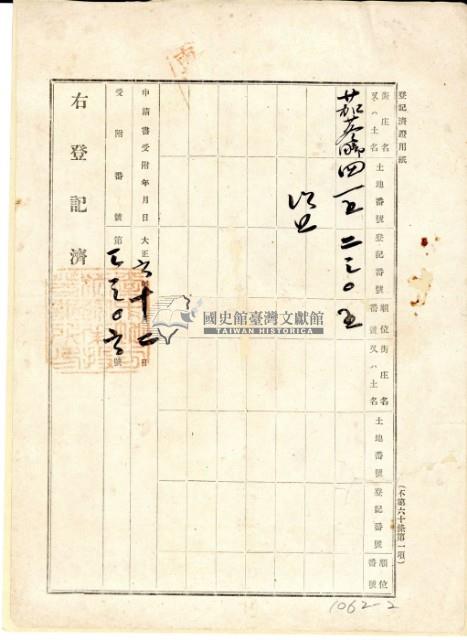 登記濟證用紙
街庄名又ハ土名
土地番號
登記番號
順位番號
街庄名又ハ土名
土地番號
登記番號
順位番號
四一五
二三〇五
申請書受附年月日
大正六十一日
受附番號
第三三〇六號
右登記濟
(不第六十條第一項)
國史館臺灣文獻館
TAIWAN HISTORICA
1062-2